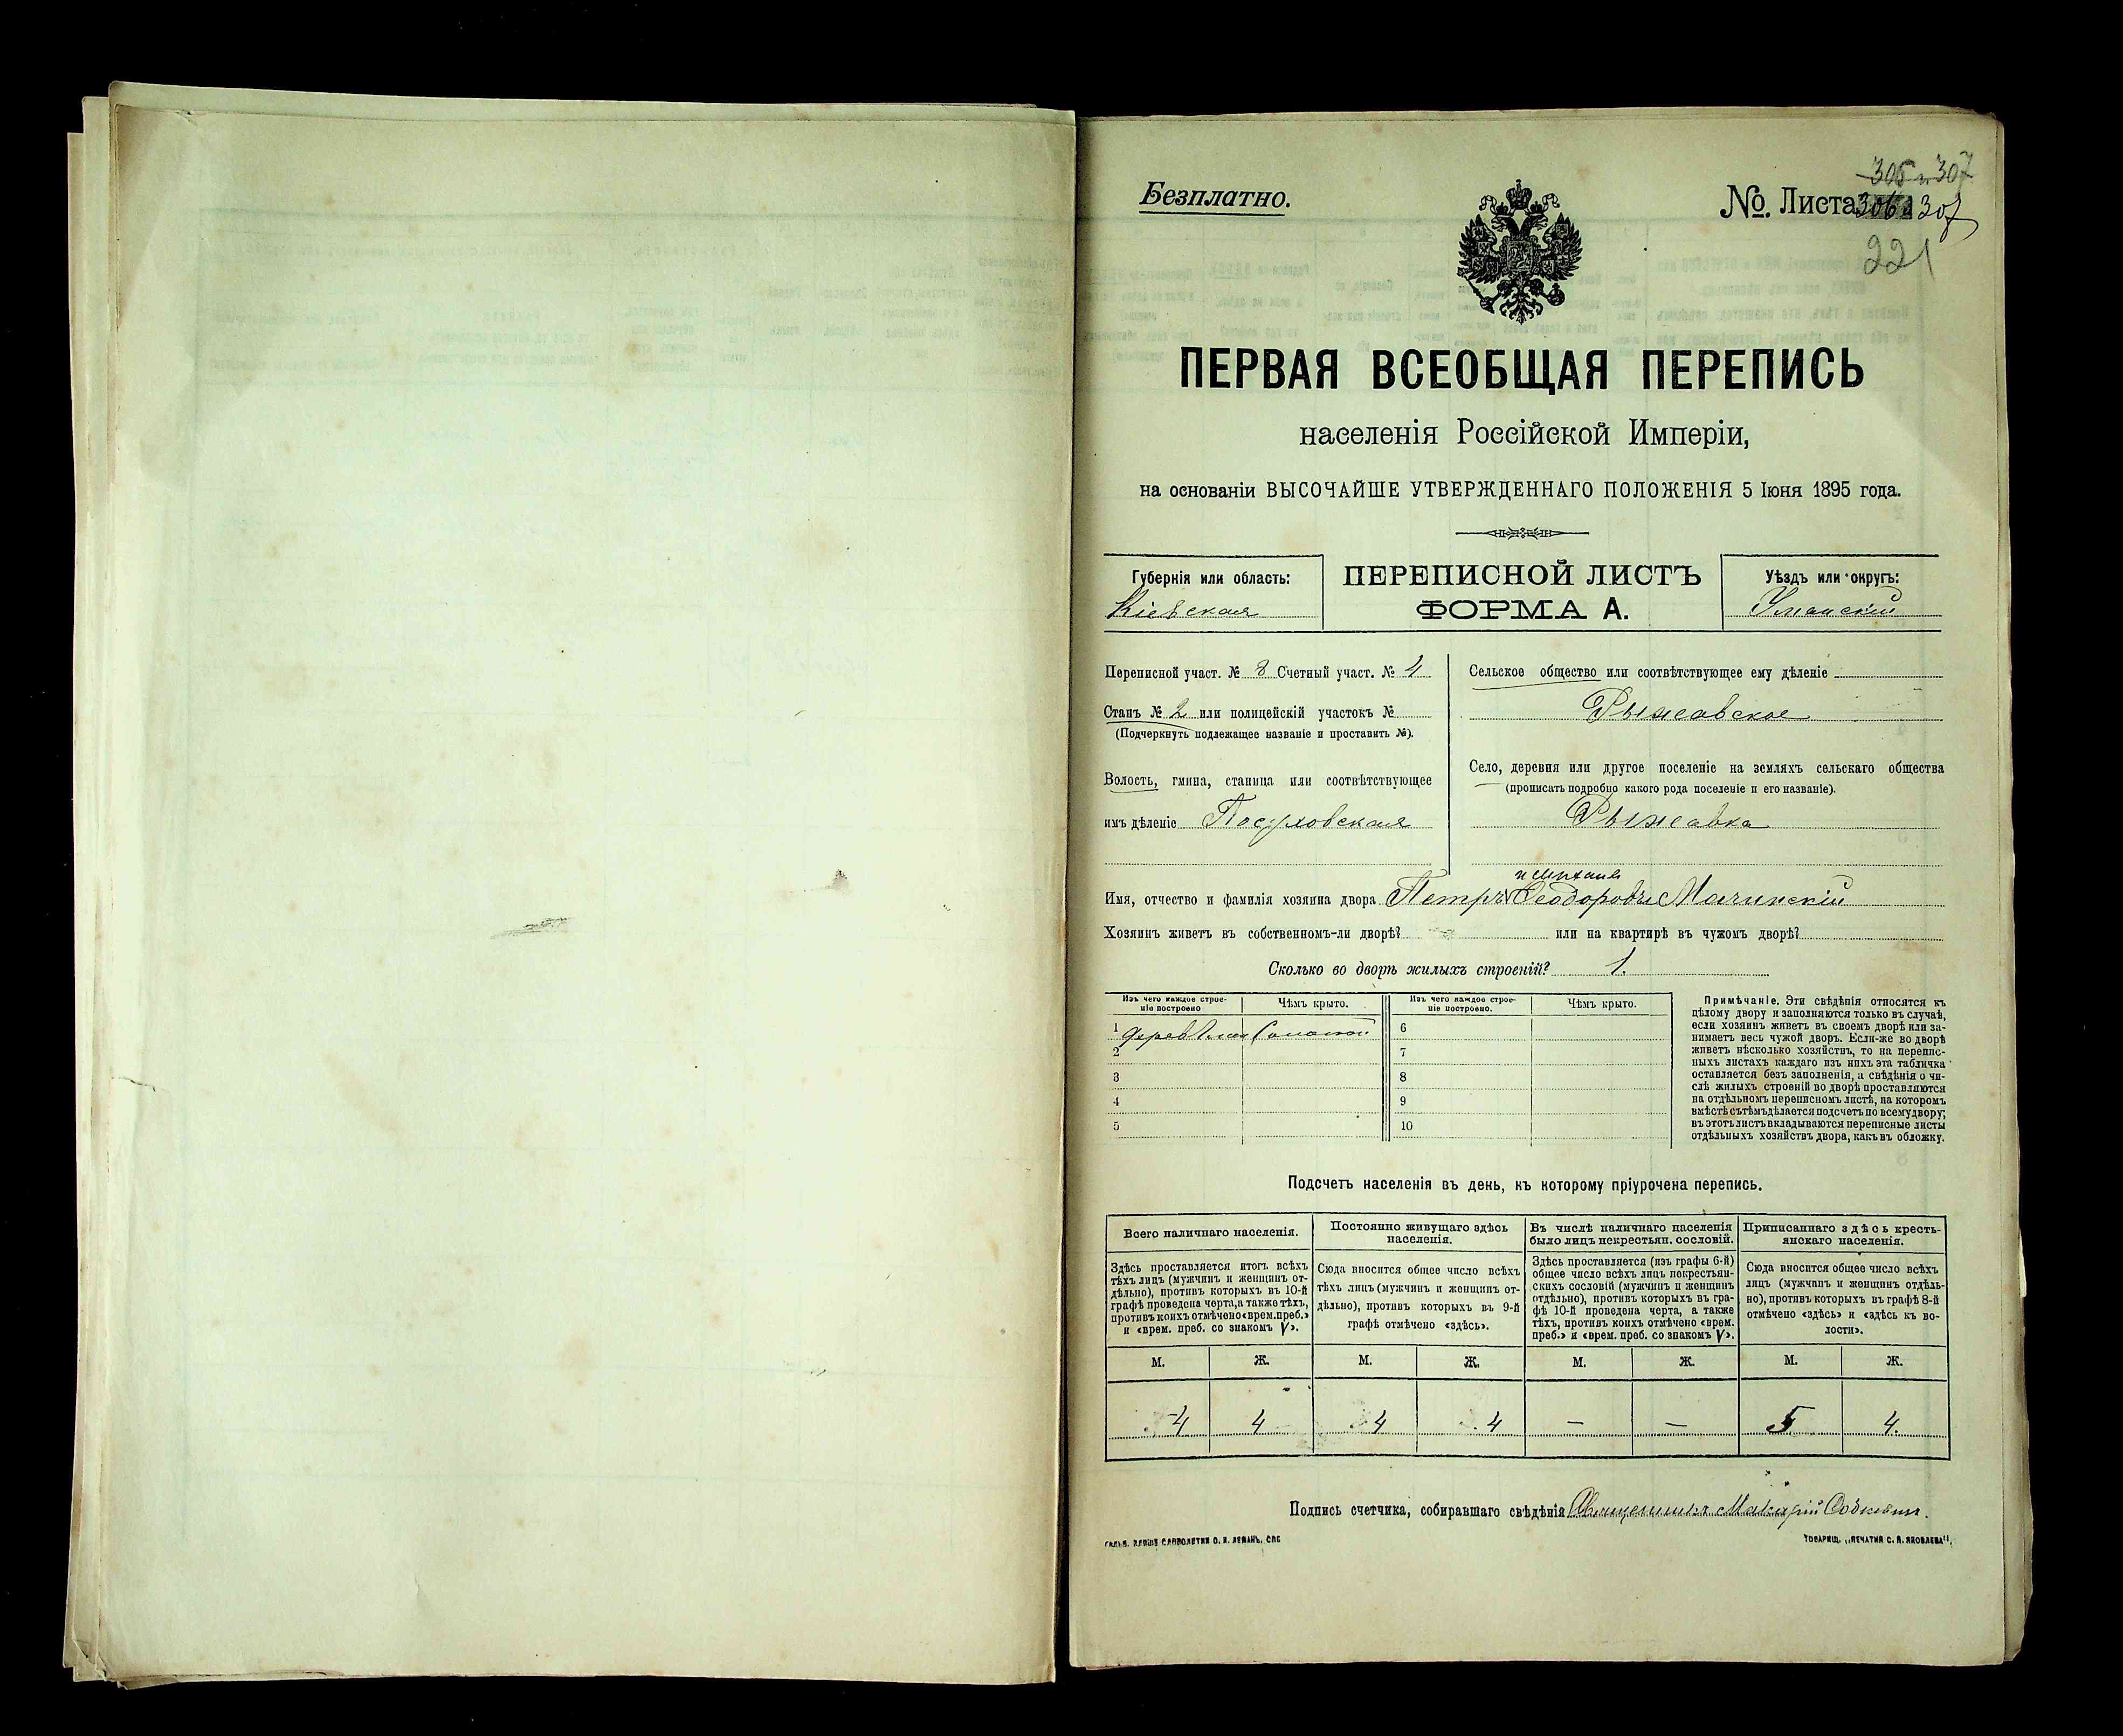 Безплатно.
№. Листа 306 и 307
305 и 307
221
ПЕРВАЯ ВСЕОБЩАЯ ПЕРЕПИСЬ
населенія Россійской Имперіи,
на основаніи ВЫСОЧАЙШЕ УТВЕРЖДЕННАГО ПОЛОЖЕНІЯ 5 Іюня 1895 года.
Губернія или область:
Кіевская
ПЕРЕПИСНОЙ ЛИСТЪ
ФОРМА А.
Уѣздъ или округъ:
Уманскій
Переписной участ. № 8 Счетный участ. № 4
Станъ № 2 или полицейскій участокъ №
(Подчеркнуть подлежащее названіе и проставить №).
Волость, гмина, станица или соотвѣтствующее
имъ дѣленіе
Сельское общество или соотвѣтствующее ему дѣленіе
Рыжавское
Село, деревня или другое поселеніе на земляхъ сельскаго общества
(прописать подробно какого рода поселеніе и его названіе).
Рыжавка
и Михаилъ
Имя, отчество и фамилія хозяина двора Петръ Ѳеодоровъ Мачинскій
Хозяинъ живетъ въ собственномъ-ли дворѣ? или на квартирѣ въ чужомъ дворѣ?
Сколько во дворѣ жилыхъ строеній? 1.
Изъ чего каждое строе-
ніе построено
Чѣмъ крыто.
Изъ чего каждое строе-
ніе построено.
Чѣмъ крыто.
1 Соломой 6
2 7
3 8
4 9
5 10
Примѣчаніе. Эти свѣдѣнія относятся къ
цѣлому двору и заполняются только въ случаѣ,
если хозяинъ живетъ въ своемъ дворѣ или за-
нимаетъ весь чужой дворъ. Если-же во дворѣ
живетъ нѣсколько хозяйствъ, то на перепис-
ныхъ листахъ каждаго изъ нихъ эта табличка
оставляется безъ заполненія, а свѣдѣнія о чи-
слѣ жилыхъ строеній во дворѣ проставляются
на отдѣльномъ переписномъ листѣ, на которомъ
вмѣстѣ съ тѣмъ дѣлается подсчетъ по всему двору;
въ этотъ листъ вкладываются переписные листы
отдѣльныхъ хозяйствъ двора, какъ въ обложку.
Подсчетъ населенія въ день, къ которому пріурочена перепись.
Всего наличнаго населенія.
Здѣсь проставляется итогъ всѣхъ
тѣхъ лицъ (мужчинъ и женщинъ от-
дѣльно), противъ которыхъ въ 10-й
графѣ проведена черта, а также тѣхъ,
противъ коихъ отмѣчено «врем. преб.»
и «врем. преб. со знакомъ V».
Постоянно живущаго здѣсь
населенія.
Сюда вносится общее число всѣхъ
тѣхъ лицъ (мужчинъ и женщинъ от-
дѣльно), противъ которыхъ въ 9-й
графѣ отмѣчено «здѣсь».
Въ числѣ наличнаго населенія
было лицъ некрестьян. сословій.
Здѣсь проставляется (изъ графы 6-й)
общее число всѣхъ лицъ некрестьян-
скихъ сословій (мужчинъ и женщинъ
отдѣльно), противъ которыхъ въ гра-
фѣ 10-й проведена черта, а также
тѣхъ, противъ коихъ отмѣчено «врем.
преб.» и «врем. преб. со знакомъ V».
Приписаннаго здѣсь кресть-
янскаго населенія.
Сюда вносится общее число всѣхъ
лицъ (мужчинъ и женщинъ отдѣль-
но), противъ которыхъ въ графѣ 8-й
отмѣчено «здѣсь» и «здѣсь къ во-
лости».
М. Ж. М. Ж. М. Ж. М. Ж.
4 4 4 4 — — 5 4.
Подпись счетчика, собиравшаго свѣдѣнія Священникъ Макарій
ТОВАРИЩ. „ПЕЧАТНЯ С. П. ЯКОВЛЕВА“.